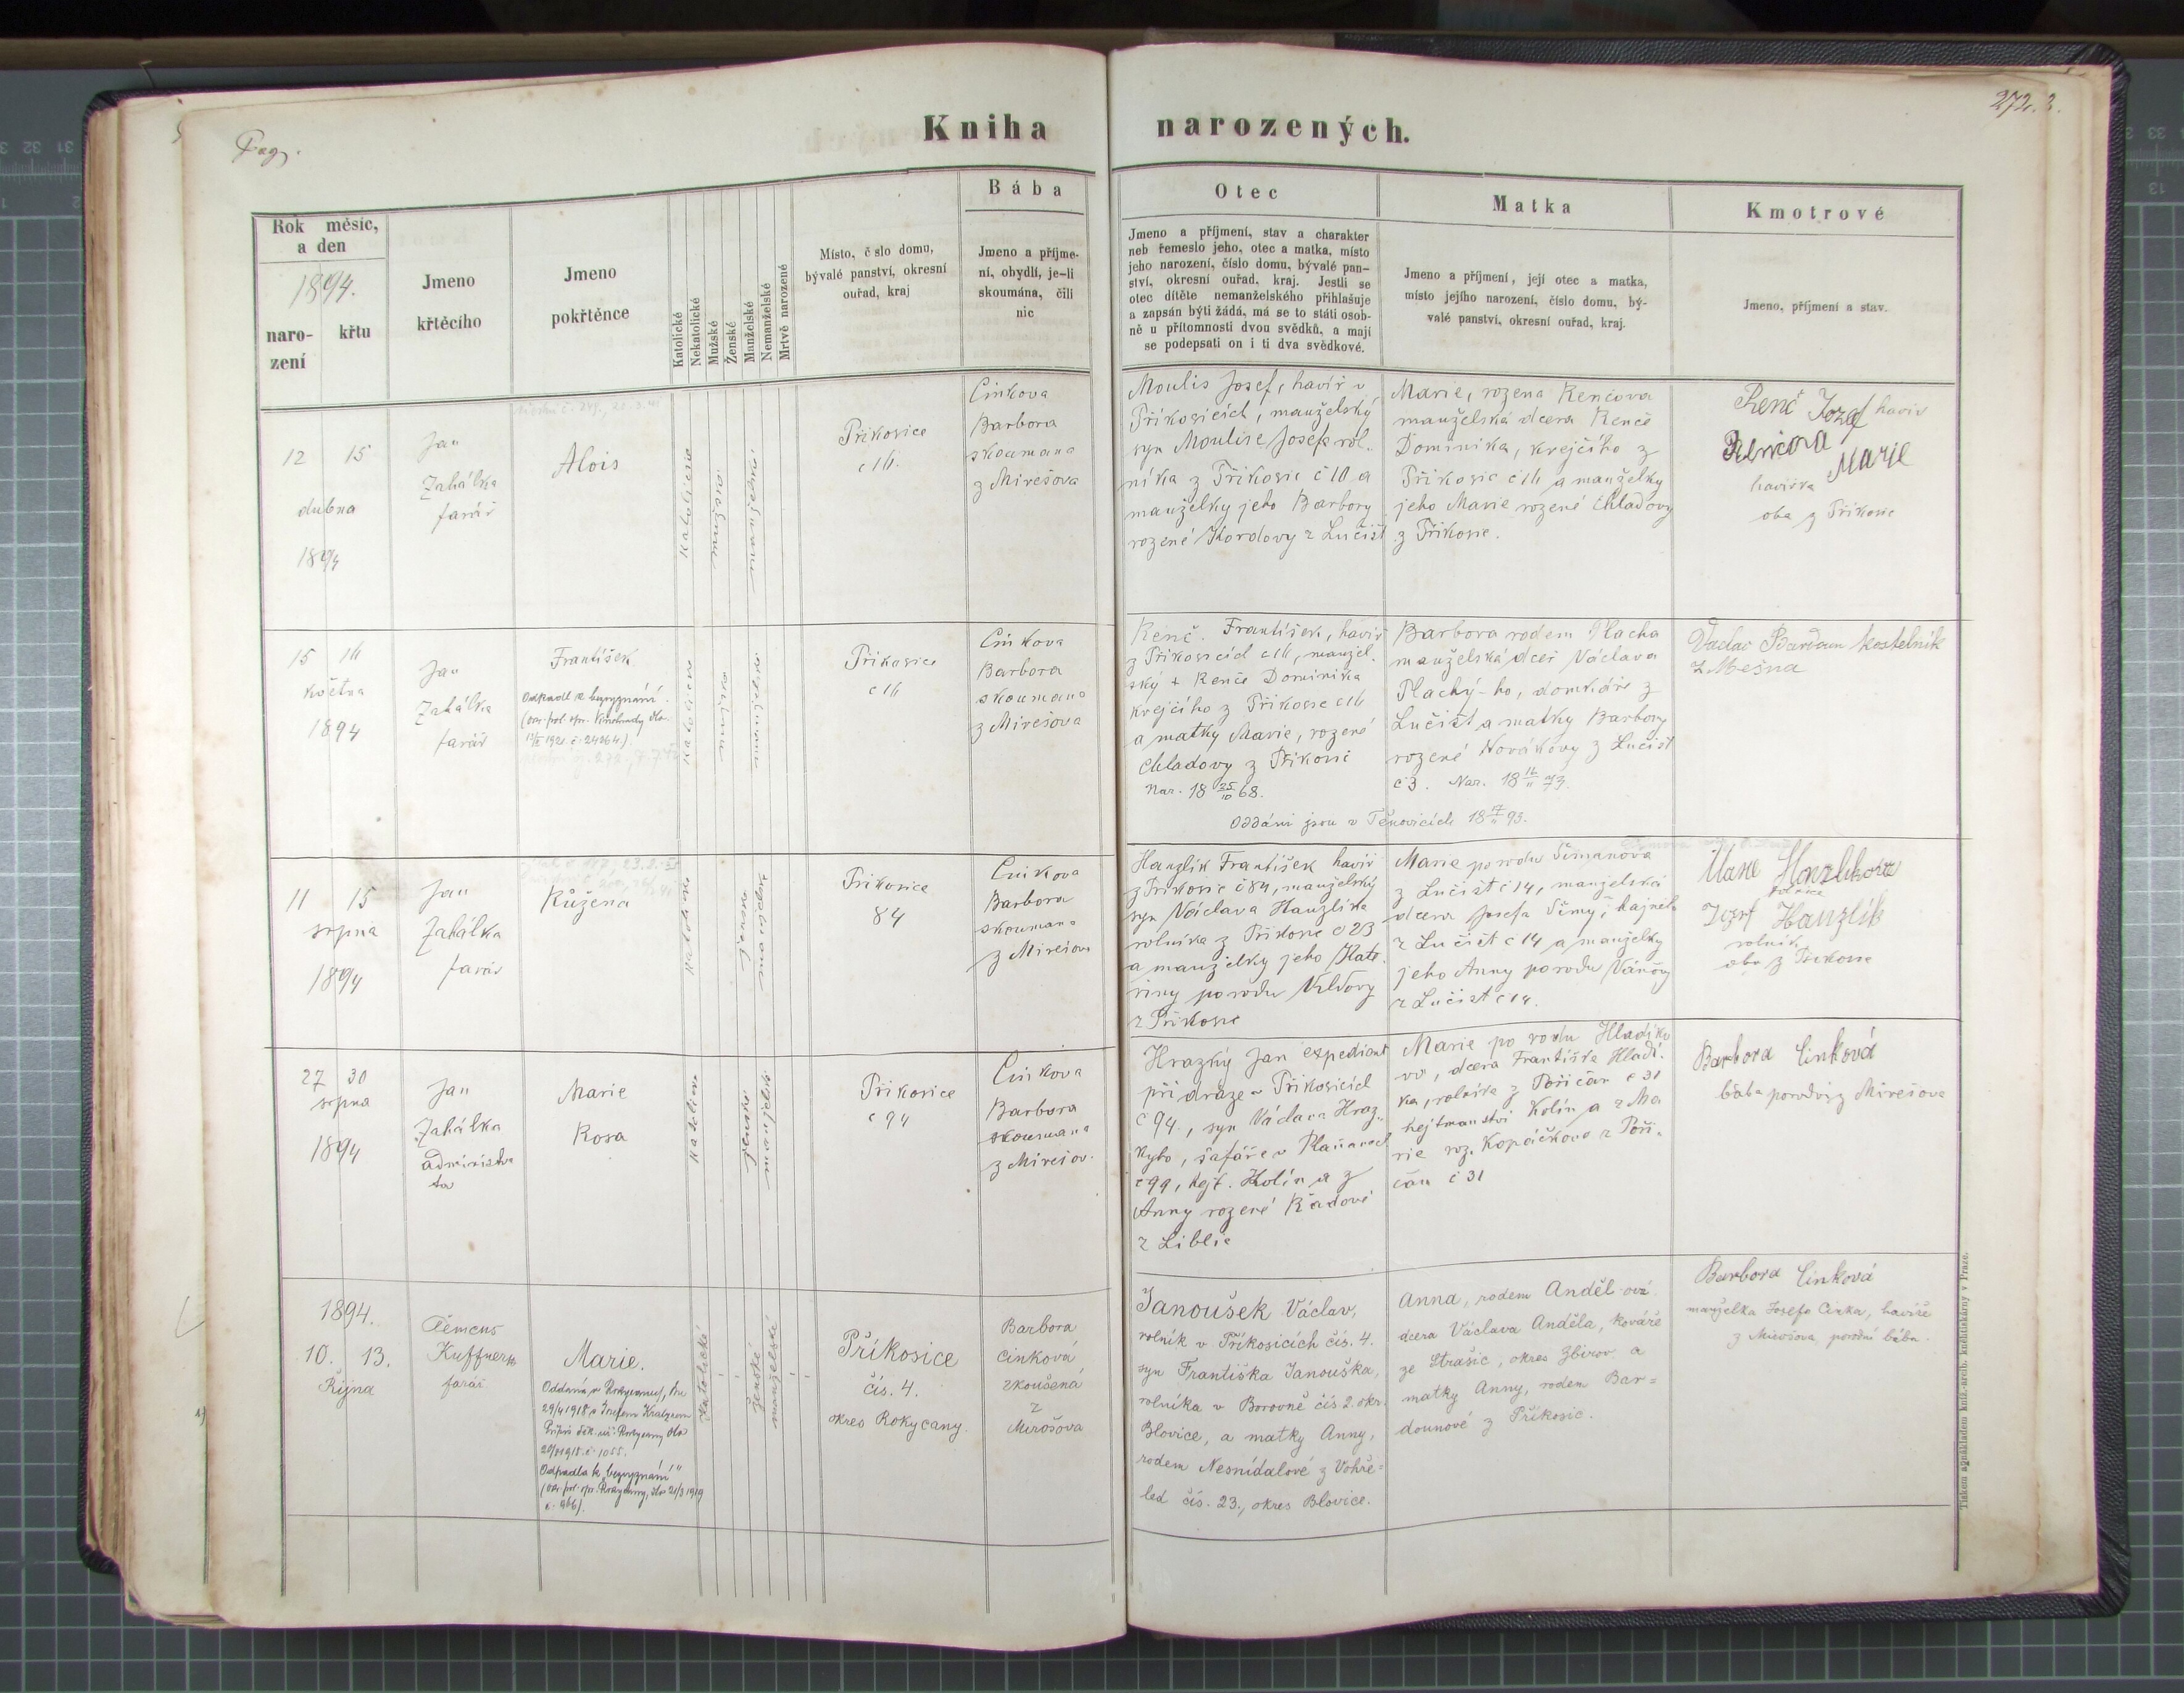 Kniha narozených.
Pag.
272. 2.
Rok měsíc,
a den
1894.
naro-
zení
křtu
Jmeno
křtěcího
Jmeno
pokřtěnce
Katolické
Nekatolické
Mužské
Ženské
Manželské
Nemanželské
Mrtvě narozené
Místo, č slo domu,
bývalé panství, okresní
ouřad, kraj
Bába
Jmeno a příjme-
ní, obydlí, je-li
skoumána, čili
nic
Otec
Jmeno a příjmení, stav a charakter
neb řemeslo jeho, otec a matka, místo
jeho narození, číslo domu, bývalé pan-
ství, okresní ouřad, kraj. Jestli se
otec dítěte nemanželského přihlašuje
a zapsán býti žádá, má se to státi osob-
ně u přítomnosti dvou svědků, a mají
se podepsati on i ti dva svědkové.
Matka
Jmeno a příjmení, její otec a matka,
místo jejího narození, číslo domu, bý-
valé panství, okresní ouřad, kraj.
Kmotrové
Jmeno, příjmení a stav.
12 15
dubna
1894
Jan
Zahálka
farář
Alois
Příkosice
c 16.
Cinkova
Barbora
skoumana
z Mirešova
Moulis Josef, havíř v
Příkosicích, manželský
syn Moulise Josefa rol-
níka z Příkosic č 10 a
manželky jeho Barbory
rozené Kordovy z Lučišť
Marie, rozena Renčova
manželská dcera Renče
Dominika, krejčího z
Příkosic č 16 a manželky
jeho Marie rozené Chladovy
z Příkosic.
Renč Jozef havíř
Renčova Marie
havířka
oba z Příkosic
15 16
května
1894
Jan
Zahálka
farář
František
Odpadl k bezvyznání
č. 24264.)
Příkosice
c 16
Cinkova
Barbora
skoumana
z Mirešova
Renč František, havíř
z Příkosicích c 16, manžel.
ský + Renče Dominika
krejčího z Příkosic c 16
a matky Marie, rozené
Chladovy z Příkosic
Nar. 18 25/10 68.
Barbora rodem Placha
manželská dceř Václava
Plachý-ho, domkáře z
Lučišť a matky Barbory
rozené Novákovy z Lučišť
č 3. Nar. 18 16/11 73.
Oddáni jsou v Těnovicích 18 17/11 93.
Václav Bardoun kostelník
z Mešna
11 15
srpna
1894
Jan
Zahálka
farář
Růžena
Příkosice
84
Cinkova
Barbora
skoumana
z Mirešova
Hanzlík František havíř
z Příkosic č 84, manželský
syn Václava Hanzlíka
rolníka z Příkosic č 23
a manželky jeho Kate-
řiny porodu
z Příkosic
Marie porodu Šimanova
z Lučišť č 14, manželská
dcera Josefa Šímy, hajného
z Lučišť č 14 a manželky
jeho Anny porodu Váňovy
z Lučišť č 14.
Marie Hanzlikova
Jozef Hanzlík
rolník
oba z Příkosic
27 30
srpna
1894
Jan
Zahálka
administra
tor
Marie
Rosa
Příkosice
c 94
Cinkova
Barbora
skoumana
z Mirešov.
Hrazký Jan expedient
při dráze v Příkosicích
č 94., syn Václava Hraz-
kyho, šafáře v Plaňanech
č 99, hejt. Kolín a z
Anny rozené Řadové
z Liblic
Marie po rodu Hladíko
va, dcera Františka Hladí-
ka, rolníka z Poříčan č 31
hejtmanství Kolín a z Ma
rie roz. Kopáčkove z Poři-
čan č 31
Barbora Cinková
bába porodní z Mirešova
1894.
10. 13.
Října
Kuffner
farář
Marie.
Oddána v Rokycanech, dne
29/4 1918 s Josefem
č. 1055.
Odpadla k "bezvyznání"
č. 466).
Příkosice
čís. 4.
okres Rokycany.
Barbora
Cinková
zkoušená
z
Mirošova
Janoušek Václav,
rolník v Příkosicích čís. 4.
syn Františka Janouška,
rolníka v Borovně čís 2. okr.
Blovice, a matky Anny,
rodem Nesnídalové z Vohře-
led čís. 23., okres Blovice.
Anna, rodem Anděl-ová
dcera Václava Anděla, kováře
ze Strašic, okres Zbirov a
matky Anny, rodem Bar=
dounové z Příkosic.
Barbora Cinková
manželka Josefa Cinka, havíře
z Mirošova, porodní bába.
Tiskem a nákladem kníž.-arcib. knihtiskárny v Praze.